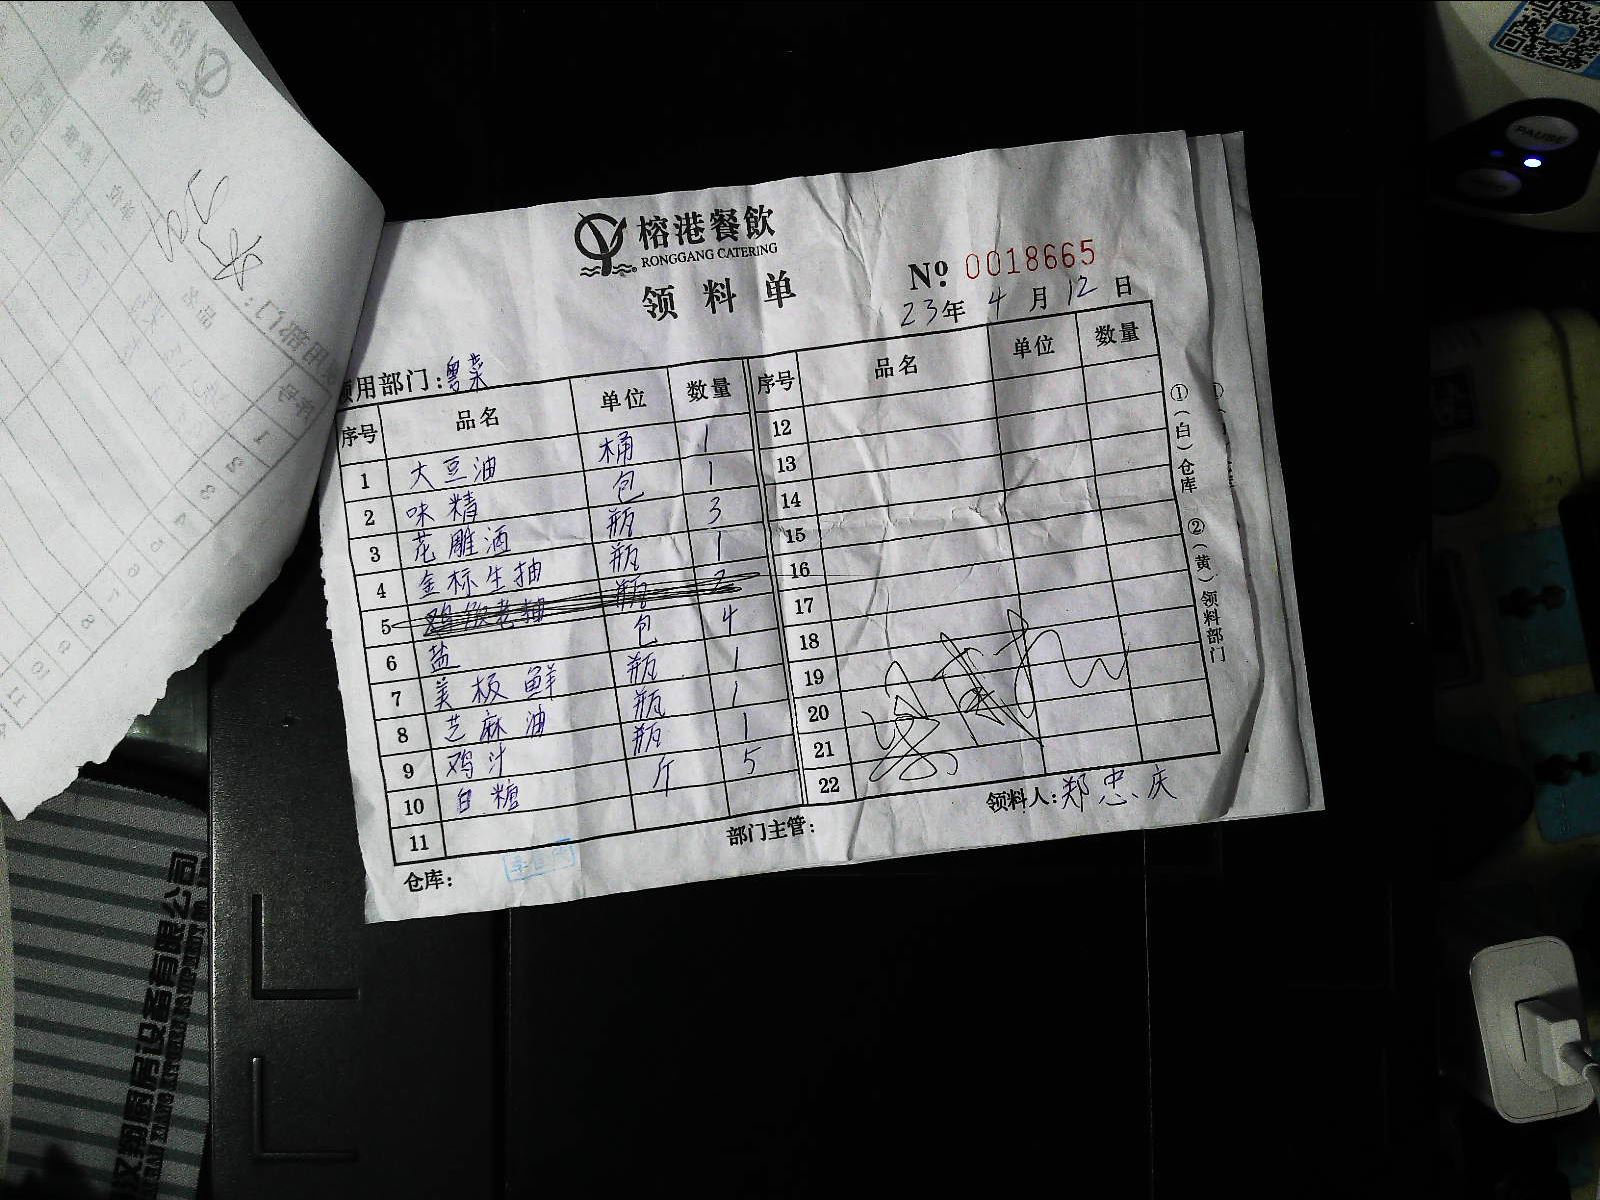 榕港餐飲
RONGGANG CATERING
领料单
№ 0018665
23年 4月 12日
领用部门:粤菜
序号 品名 单位 数量 序号 品名 单位 数量
1 大豆油 桶 1 12
2 味精 包 1 13
3 花雕酒 瓶 3 14
4 金标生抽 瓶 1 15
5 瓶 2 16
6 盐 包 4 17
7 美极鲜 瓶 1 18
8 芝麻油 瓶 1 19
9 鸡汁 瓶 1 20
10 白糖 斤 5 21
11 22
仓库: 部门主管: 领料人:郑忠庆
①(白)仓库 ②(黄)领料部门
PAUSE
厨房设备有限公司